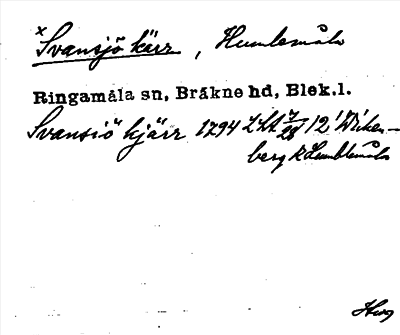 × Svansjö kärr, Humlemåla
Ringamåla sn, Bräkne hd, Blek.l.
Svansiö kjärr 1794 LSA 7/28 12 Wiken-
berg & Humblemåla